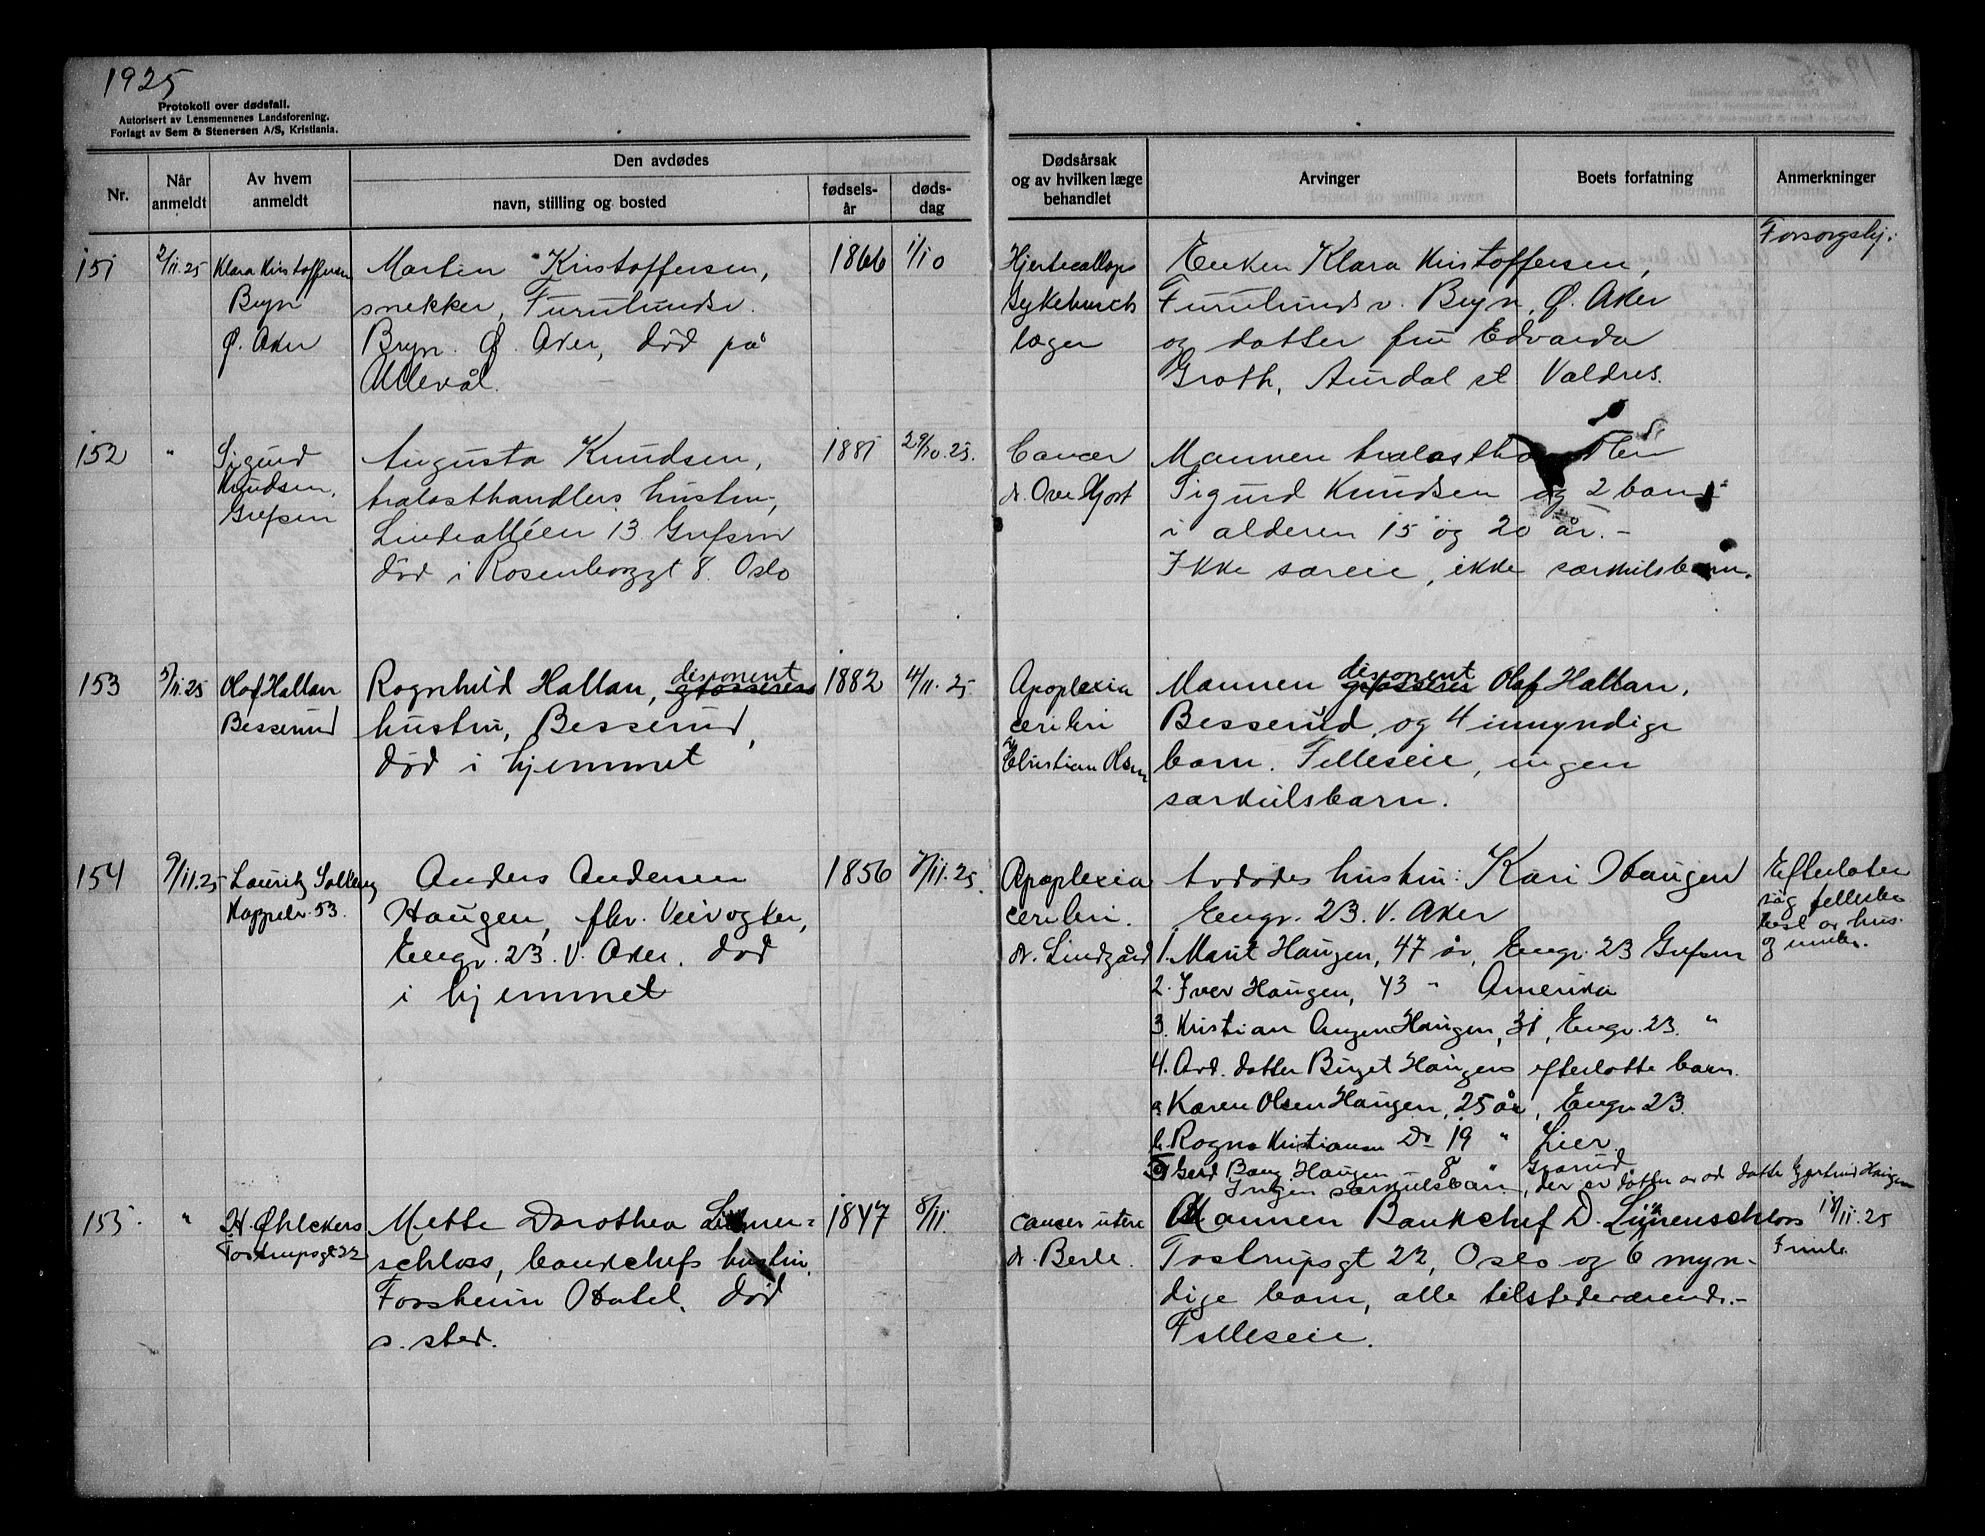 1925
Protokoll over dødsfall.
Autorisert av Lensmennenes Landsforening.
Forlagt av Sem & Stenersen A/S, Kristiania.
Nr.
Når anmeldt
Av hvem anmeldt
Den avdødes
navn, stilling og bosted
fødsels-år
døds-dag
Dødsårsak og av hvilken læge behandlet
Arvinger
Boets forfatning
Anmerkninger
151
2/11.25
Klara Kristoffersen
Bryn
Ø. Aker
Martin Kristoffersen,
snekker, Furulundsv.
Bryn. Ø. Aker, død på
Ullevål.
1866
1/10
Hjertecollaps
lægen
Enken Klara Kristoffersen,
Furulundsv. Bryn, Ø. Aker
og datter fru Edvarda
Groth, Aurdal st. Valdres.
Forsorgshj.
152
"
Sigurd
Knudsen,
Grefsen
Augusta Knudsen,
trælasthandlers hustru,
Lindealléen 13 Grefsen
død i Rosenborggt 8. Oslo
1881
29/10.25.
Cancer
dr. Ove Hjort
Mannen
Sigurd Knudsen og 2 barn
i alderen 15 og 20 år. -
Ikke særeie, ikke særkulsbarn.
153
5/11.25
Olof Hallan
Besserud
disponent
Ragnhild Hallan, grosseres
hustru, Besserud,
død i hjemmet
1882
4/11.25
Apoplexia
cerebri
dr. Christian Olsen
disponent
Mannen grosserer Olaf Hallan,
Besserud, og 4 umyndige
barn. Felleseie, ingen
særkulsbarn.
154
9/11.25
Lauritz Solberg
Kappelv. 53.
Anders Andersen
Haugen, fhv. Veivogter,
Engv. 23. V. Aker. død
i hjemmet
1856
7/11.25.
Apoplexia
cerebri.
dr. Lindgård
Avdødes hustru: Kari Haugen
Engv. 23. V. Aker
1. Marit Haugen, 47 år, Engv. 23 Grefsen
2. Iver Haugen, 43 " Amerika
3. Kristian Haugen, 31, Engv. 23. "
4. Avd. datter Birget Haugens efterlatte barn.
a Karen Olsen Haugen, 25 år, Engv. 23.
b. Ragna Kristiansen Do 19 " Lier
Gerd Bang Haugen 8 " Grorud
Ingen særkulsbarn, der er datter av avd. datter Gjertrud Haugen
Efterlater
sig felles
av hus
155.
"
H. Øhlckers
Tostrupsgt 22
Mette Dorothea Lünen=
schloss, bankchefs hustru,
Forsheim Hotel. død
s. sted.
1847
8/11
cancer uteri
dr. Berle.
Mannen Bankchef D. Lünenschloss
Tostrupsgt 22, Oslo og 6 myn-
dige barn, alle tilstedeværende.-
Felleseie.
18/11.25